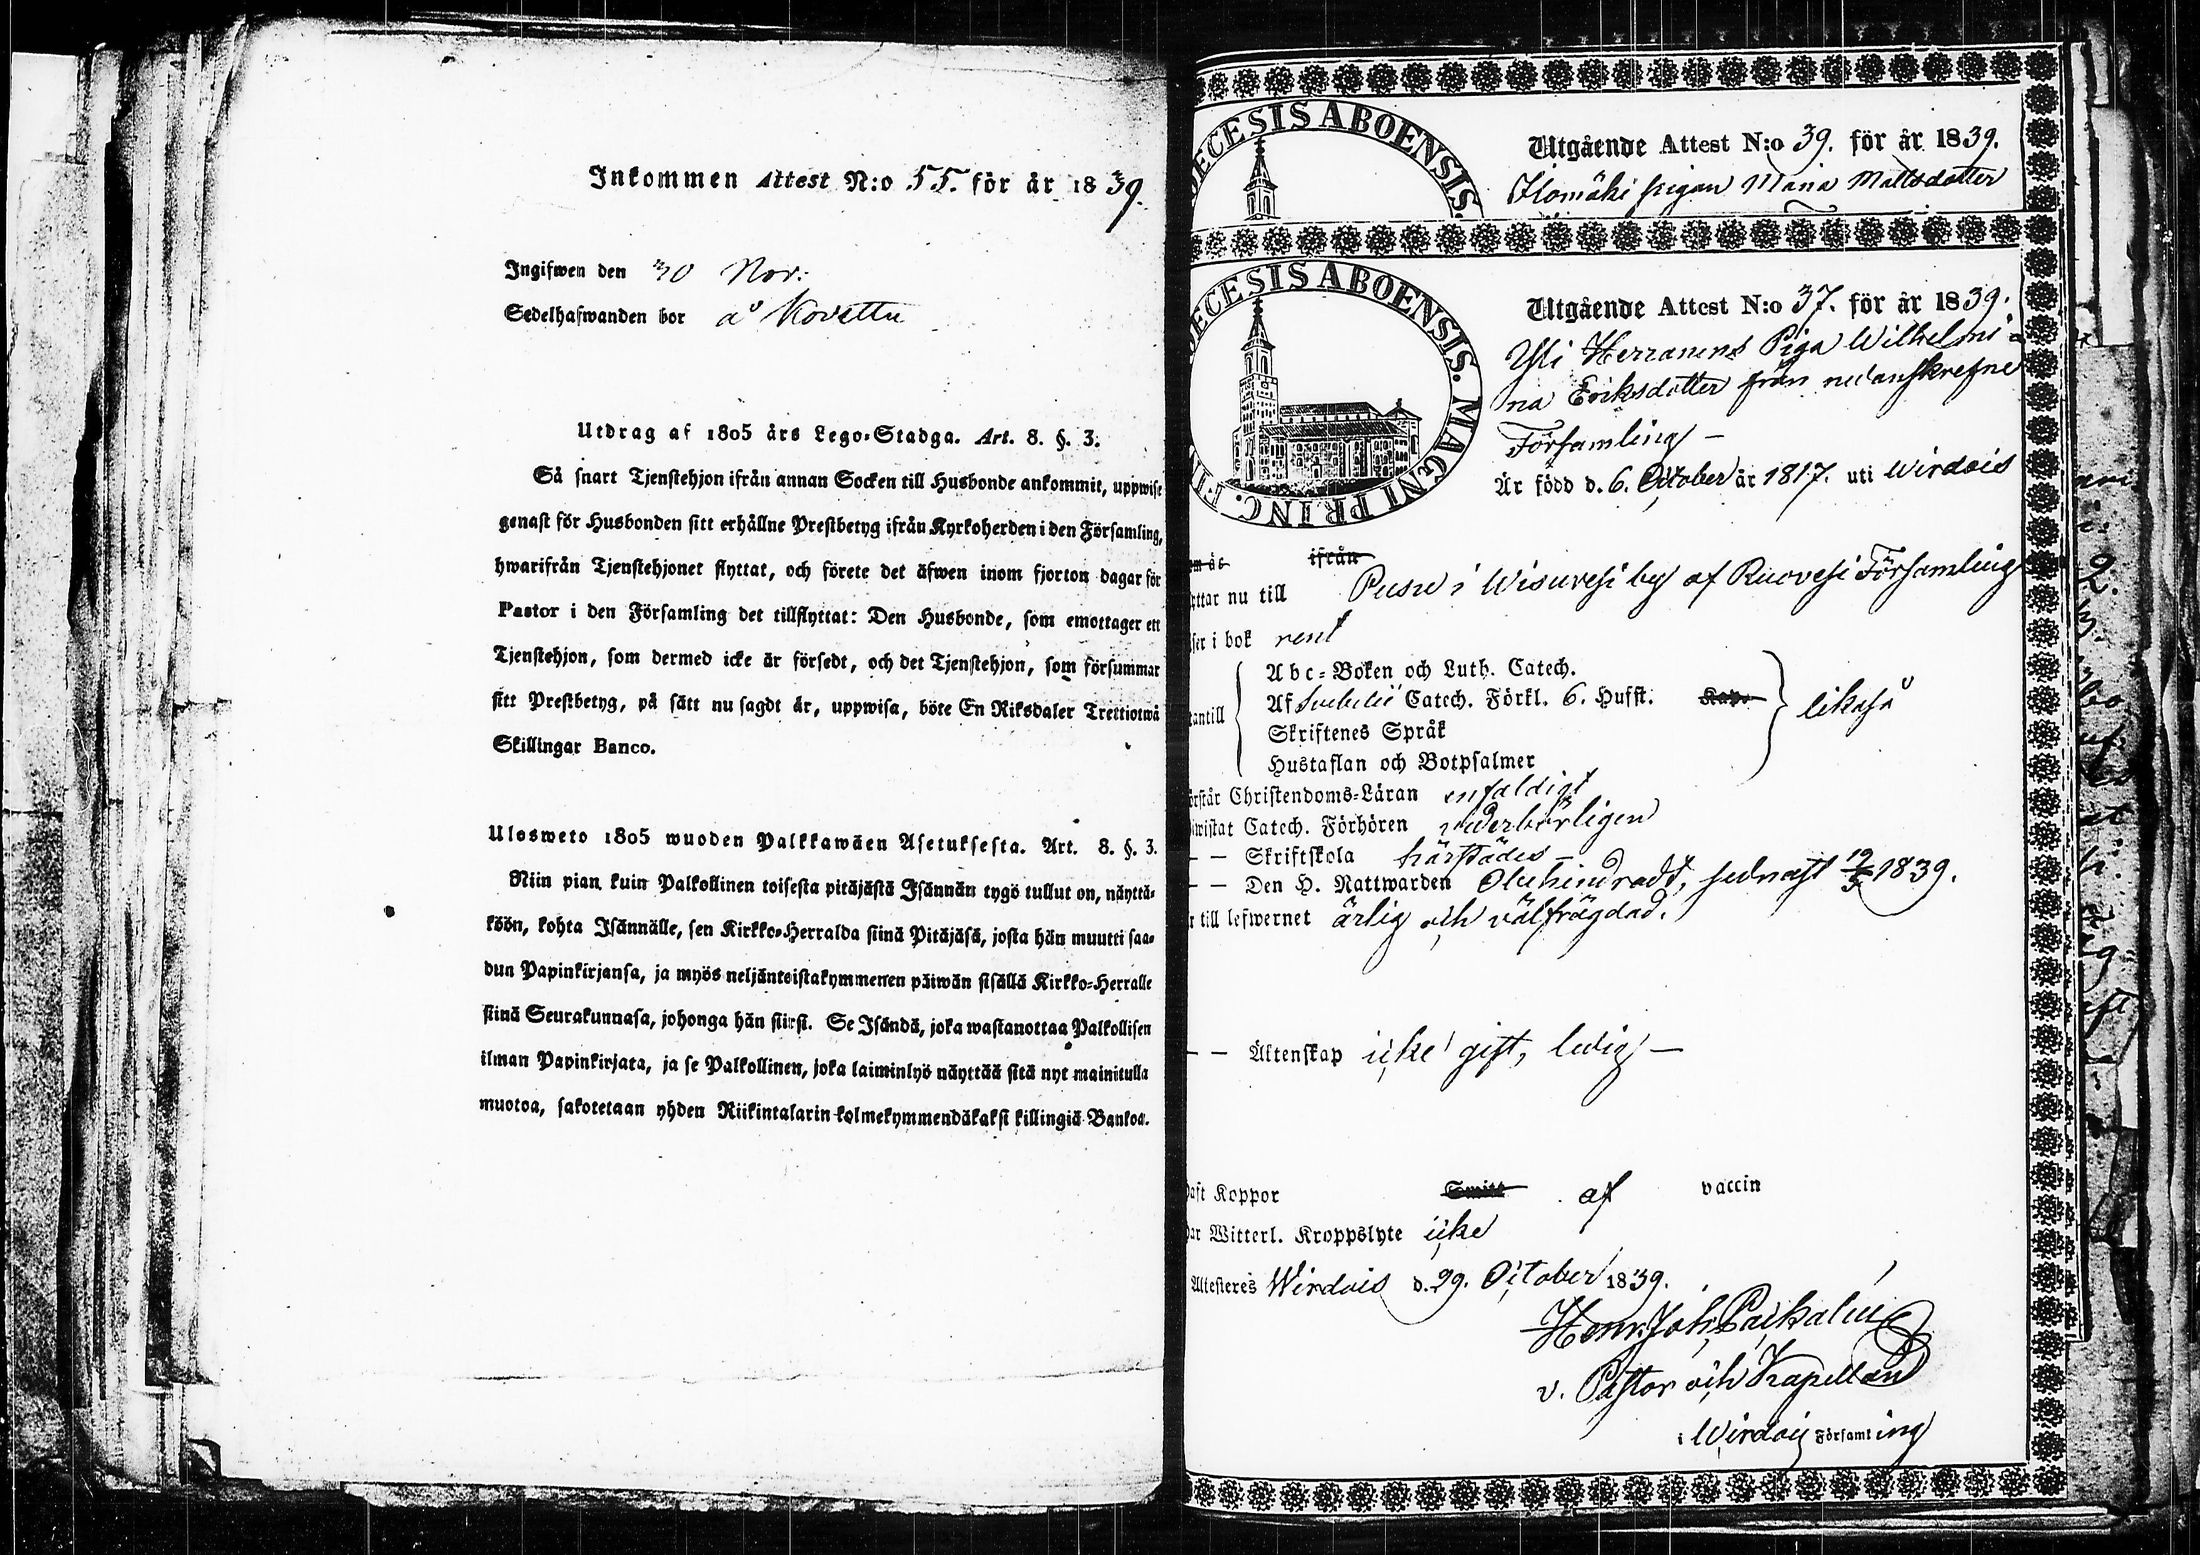 Inkommen Attest N:o 55. för år 1839.
Ingifwen den 30 Nov:
Sedelhafwanden bor å Kovettu
Utdrag af 1805 års Lego-Stadga. Art. 8. §. 3.
Så snart Tjenstehjon ifrån annan Socken till Husbonde ankommit, uppwise
genast för Husbonden sitt erhållne Prestbetyg ifrån Kyrkoherden i den Församling,
hwarifrån Tjenstehjonet flyttat, och förete det äfwen inom fjorton dagar för
Pastor i den Församling det tillflyttat: Den Husbonde, som emottager ett
Tjenstehjon, som dermed icke är försedt, och det Tjenstehjon, som försummar
sitt Prestbetyg, på sätt nu sagdt är, uppwisa, böte En Riksdaler Trettiotwå
Skillingar Banco.
Ulosweto 1805 wuoden Palkkawäen Asetuksesta. Art. 8. §. 3.
Niin pian kuin Palkollinen toisesta pitäjästä Isännän tygö tullut on, näyttä-
köön, kohta Isännälle, sen Kirkko-Herralda siinä Pitäjäsä, josta hän muutti saa-
dun Papinkirjansa, ja myös neljäntoistakymmenen päiwän sisällä Kirkko-Herralle
siinä Seurakunnasa, johonga hän siirsi. Se Isändä, joka wastanottaa Palkollisen
ilman Papinkirjata, ja se Palkollinen, joka laiminlyö näyttää sitä nyt mainitulla
muotoa, sakotetaan yhden Riikintalarin kolmekymmendäkaksi killingiä Bankoa.
ECESIS ABOENSIS.
Utgående Attest N:o 39. för år 1839.
pigan Maria Mattsdotter
ECESIS ABOENSIS. MAGNI PRINC. FIN
Utgående Attest N:o 37. för år 1839.
Yli Herranens Piga Wilhelmi-
na Eriksdotter från nedanskrefne
Församling —
Är född d. 6. October år 1817. uti Wirdois
ifrån
ttar nu till Pusu i Wisuvesi by af Ruovesi Församling
ser i bok rent
Abc-Boken och Luth. Catech.
Af Svebelii Catech. Förkl. 6. Hufst. Kap. likaså
antill
Skriftenes Språk
Hustaflan och Botpsalmer
örstår Christendoms-Läran enfaldigt
iwistat Catech. Förhören vederbörligen
— — Skriftskola härstädes —
— — Den H. Nattwarden Obehindradt, sednast 19/5 1839.
r till lefwernet ärlig och välfrägdad.
— — Äktenskap icke gift, ledig —
haft Koppor Smitt af vaccin
har Witterl. Kroppslyte icke
Attesteres Wirdois d. 29. October 1839.
Henr. Joh.
v. Pastor och Kapellan
i Wirdois Församling